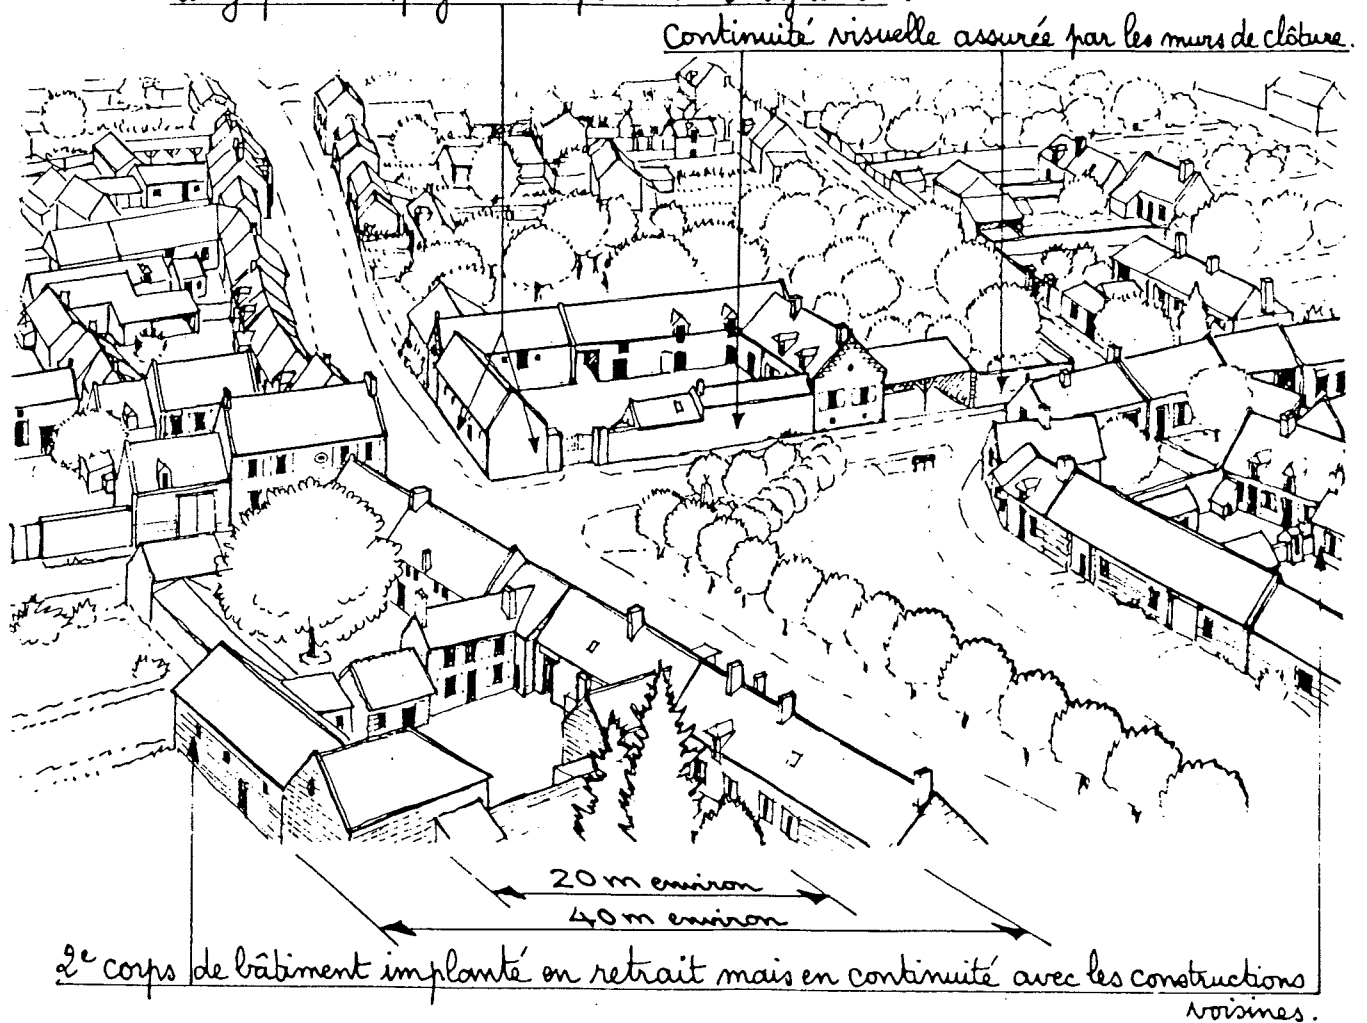 Continuité visuelle assurée par les murs de clôture.
20 m environ
40 m environ
2e corps de bâtiment implanté en retrait mais en continuité avec les constructions
voisines.